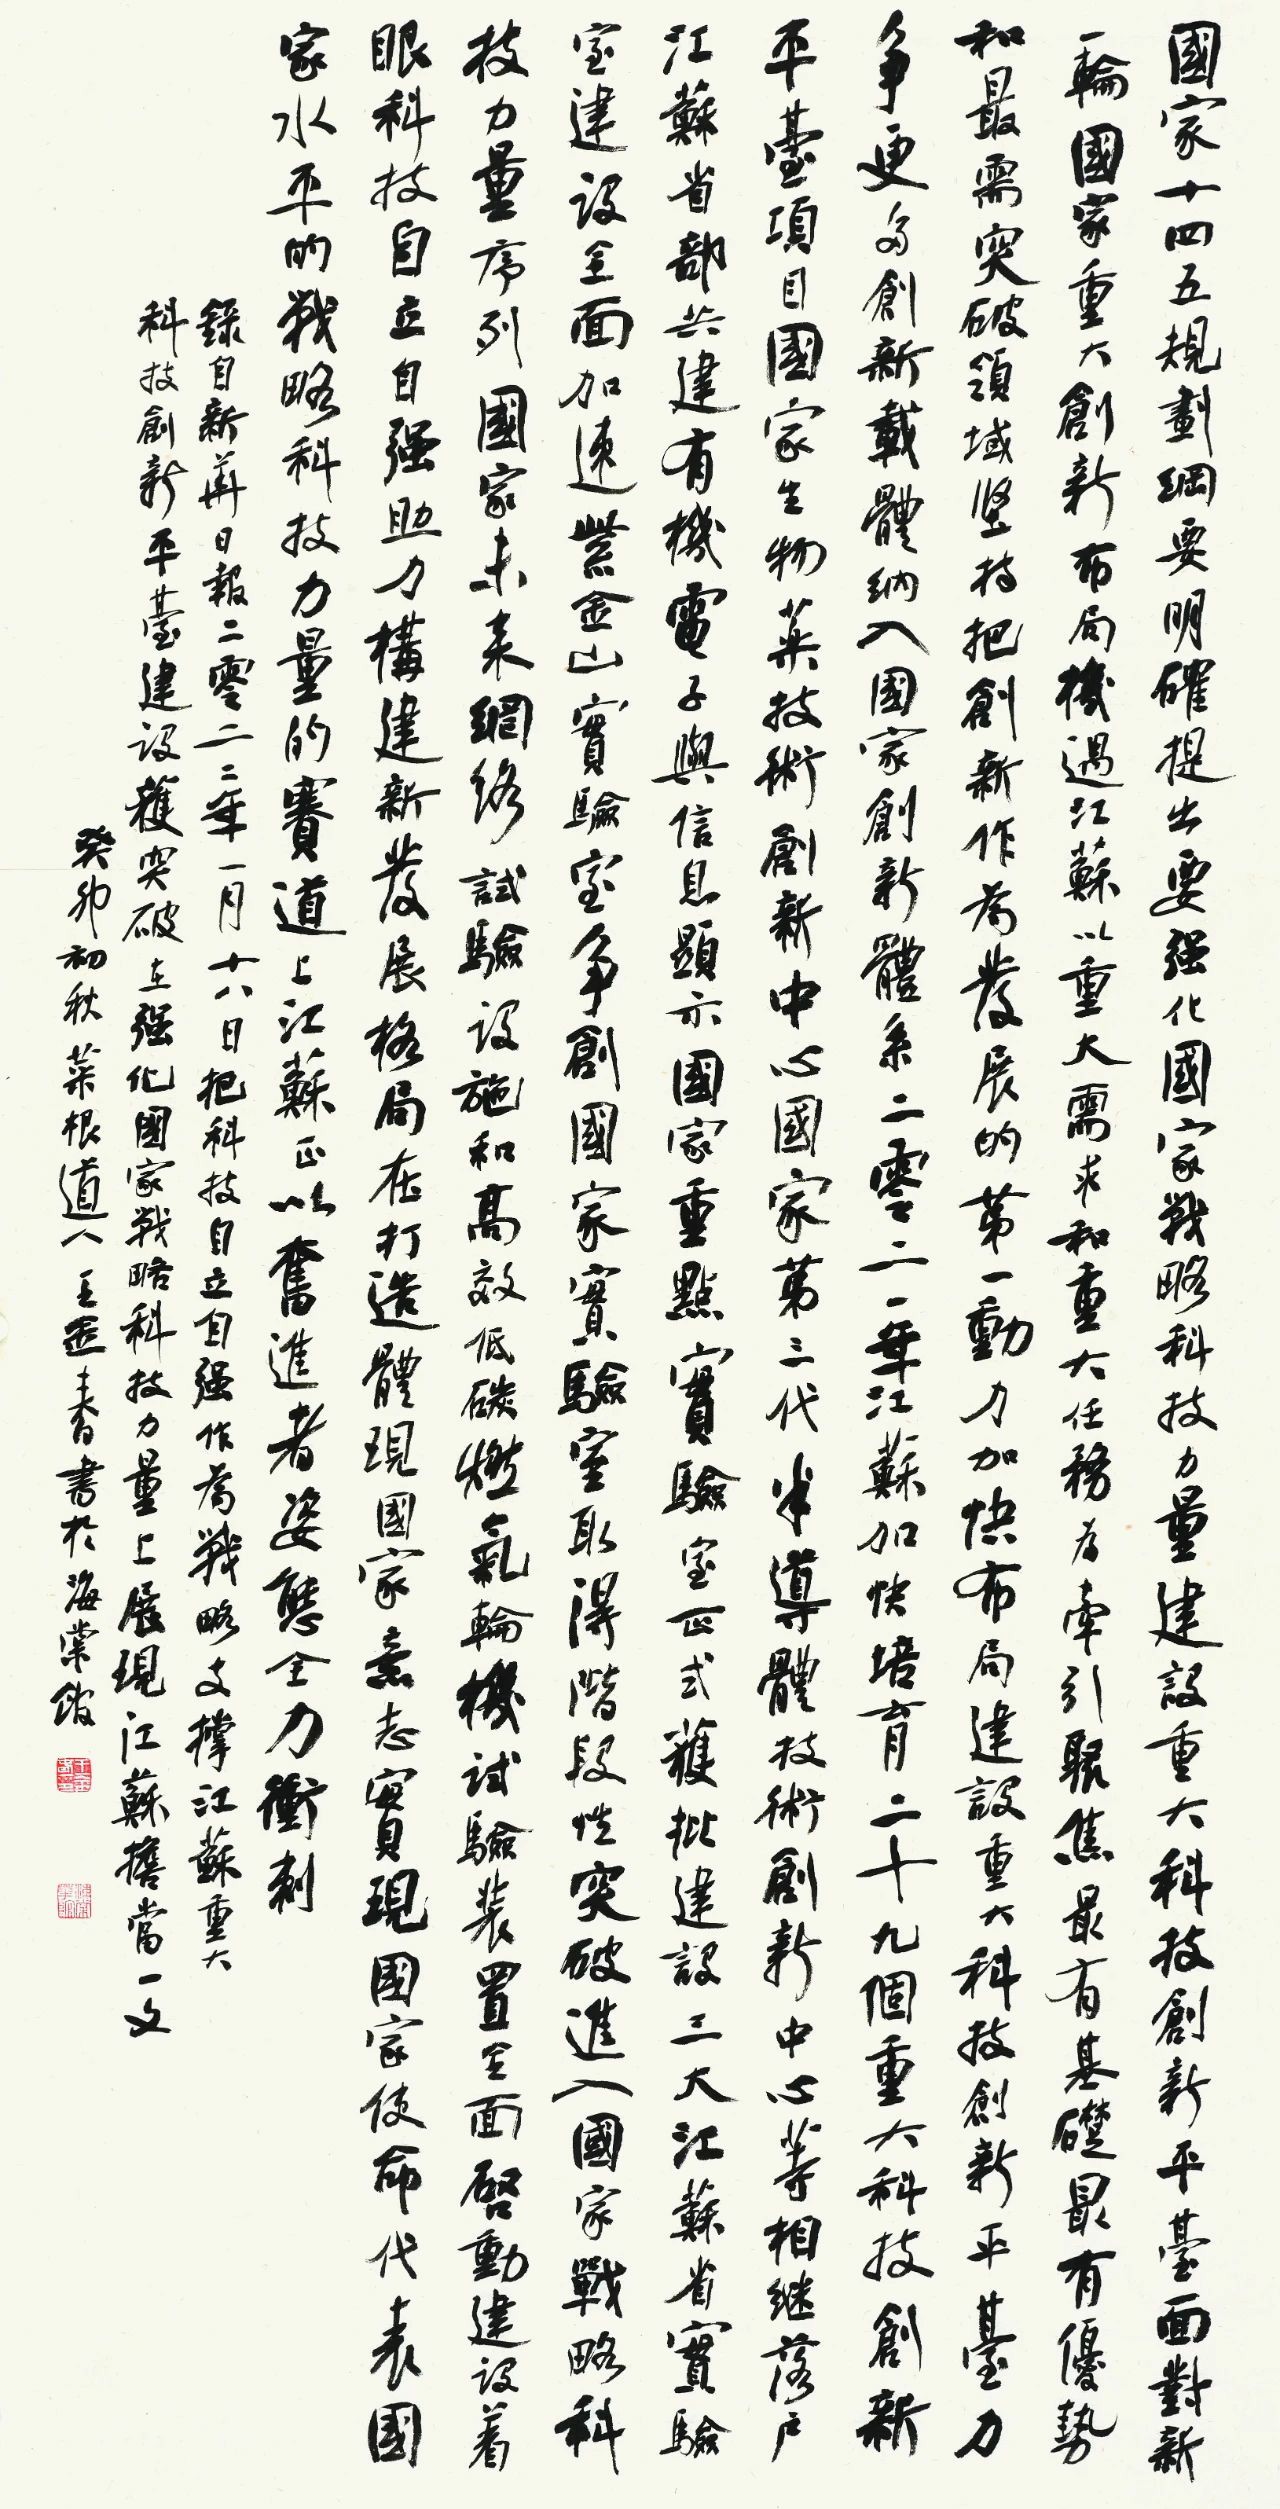 國家十四五規劃綱要明確提出要强化國家戰略科技力量建設重大科技創新平臺面對新
一輪國家重大創新布局機遇江蘇以重大需求和重大任務为牽引聚焦最有基礎最有優勢
和最需突破領域堅持把創新作為發展的第一動力加快布局建設重大科技創新平臺力
争更多創新載體納入國家創新體系二零二一年江蘇加快培育二十九個重大科技創新
平臺項目國家生物藥技術創新中心國家第三代半導體技術創新中心等相继落户
江蘇省部共建有機電子與信息顯示國家重點實驗室正式獲批建設三大江蘇省實驗
室建設全面加速紫金山實驗室争創國家實驗室取得階段性突破進入國家戰略科
技力量序列國家未来網絡試驗設施和高效低碳燃氣輪機試驗装置全面啓動建設着
眼科技自立自强助力構建新發展格局在打造體現國家意志實現國家使命代表國
家水平的戰略科技力量的賽道上江蘇正以奮進者姿態全力衝刺
録自新華日報二零二二年一月十八日把科技自立自强作為戰略支撑江蘇重大
科技創新平臺建設獲突破在强化國家戰略科技力量上展現江蘇擔當一文
癸卯初秋菜根道人王書於海棠館